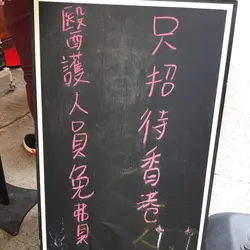 只招待香港人
醫護人員免費